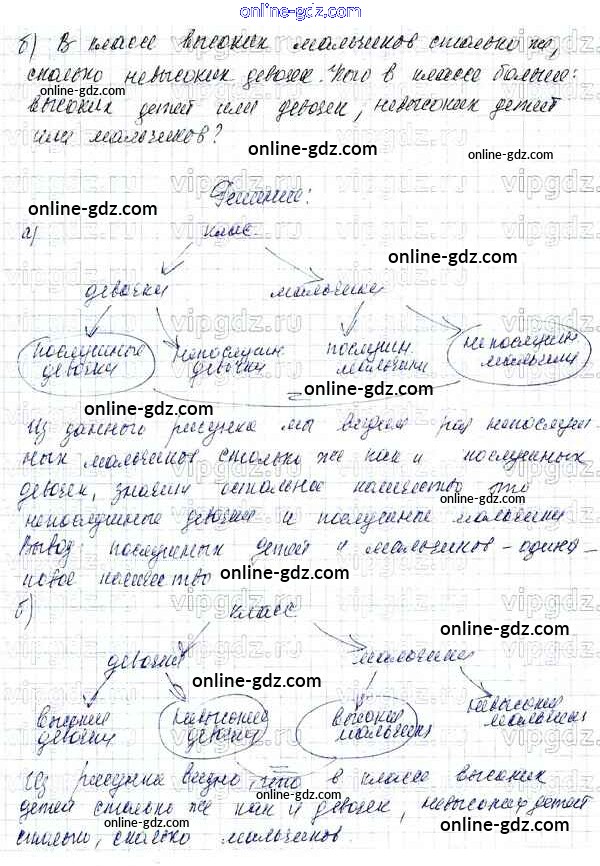 online-gdz.com
б) В классе высоких мальчиков столько же,
сколько невысоких девочек. Кого в классе больше:
высоких детей или девочек, невысоких детей
или мальчиков?
online-gdz.com
online-gdz.com
Решение:
online-gdz.com
а) класс
online-gdz.com
девочки мальчики
послушные девочки
непослушн. девочки
послушн. мальчики
непослушн. мальчики
=
online-gdz.com
online-gdz.com
Из данного рисунка мы видим раз непослуш-
ных мальчиков столько же как и послушных
девочек, значит остальное количество это
online-gdz.com
непослушные девочки и послушные мальчики
Вывод: послушных детей и мальчиков - одина-
ковое количество
online-gdz.com
online-gdz.com
б) класс
online-gdz.com
девочки мальчики
online-gdz.com
высокие девочки
невысокие девочки
высокие мальчики
невысокие мальчики
online-gdz.com
=
Из рисунка видно, что в классе высоких
детей столько же как и девочек, невысоких детей
столько, сколько мальчиков.
online-gdz.com
online-gdz.com